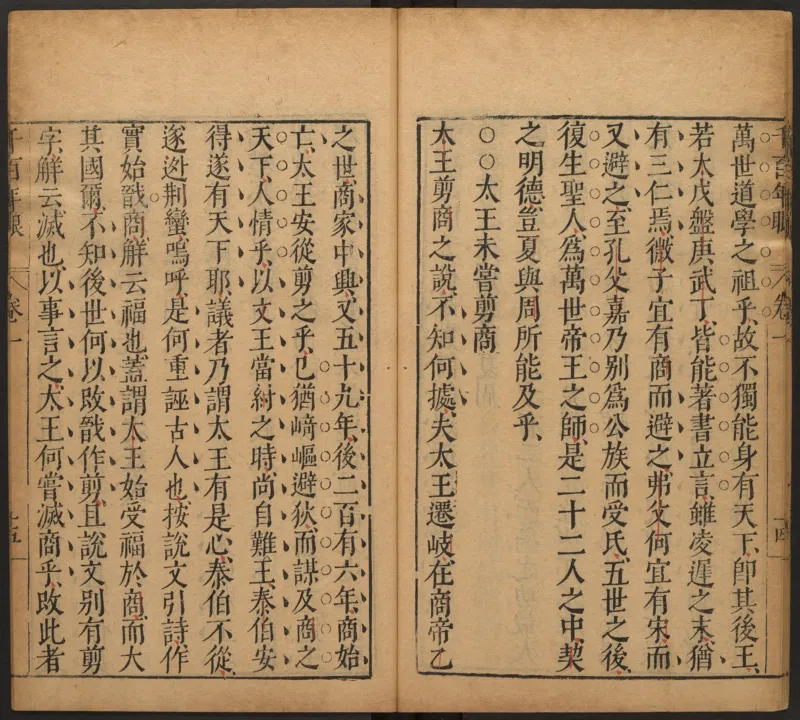 千百年眼 卷一 十四
萬世道學之祖乎故不獨能身有天下卽其後王
若太戊盤庚武丁皆能著書立言雖凌遲之末猶
有三仁焉微子宜有商而避之弗父何宜有宋而
又避之至孔父嘉乃别爲公族而受氏五世之後
復生聖人爲萬世帝王之師是二十二人之中契
之明德豈夏與周所能及乎
○○太王未嘗剪商
太王剪商之說不知何據夫太王遷岐在商帝乙
之世商家中興又五十九年後二百有六年商始
亡太王安從剪之乎已猶﨑嶇避狄而謀及商之
天下人情乎以文王當紂之時尚自難王泰伯安
得遂有天下耶議者乃謂太王有是心泰伯不從
遂逃荆蠻嗚呼是何重誣古人也按說文引詩作
實始戩商解云福也蓋謂太王始受福於商而大
其國爾不知後世何以攺戩作剪且說文别有剪
字解云滅也以事言之太王何嘗滅商乎攺此者
千百年眼 卷一 十五